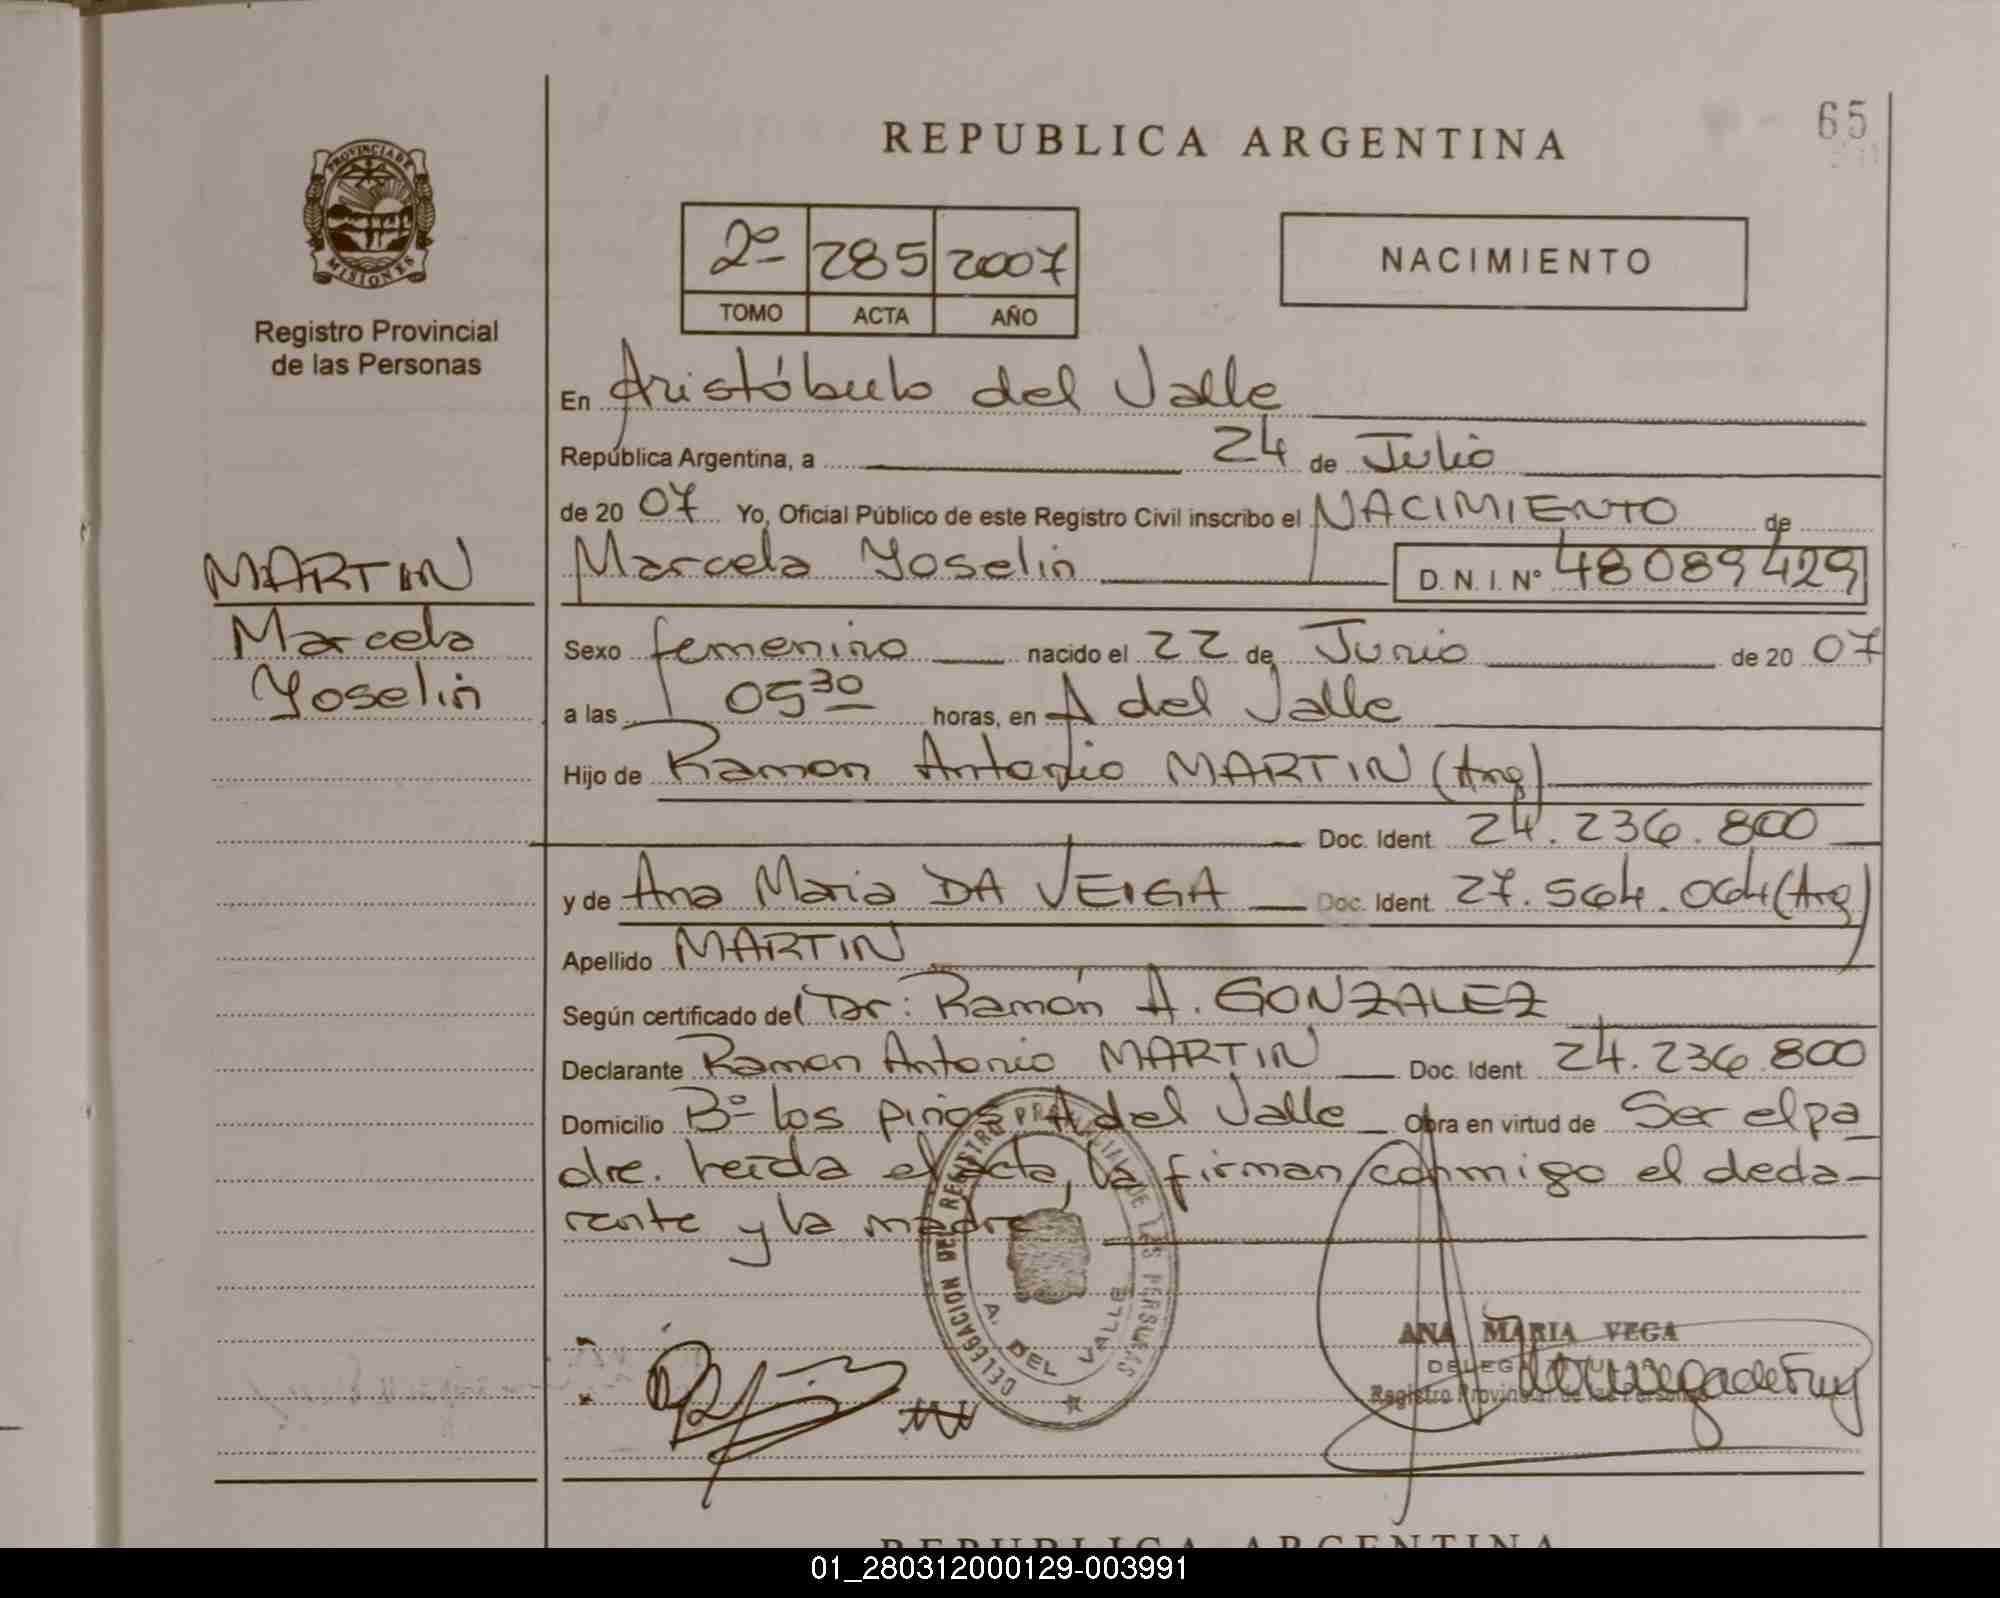 65
REPUBLICA ARGENTINA
PROVINCIA DE
MISIONES
Registro Provincial
de las Personas
2º 285 2007
TOMO ACTA AÑO
NACIMIENTO
En Aristóbulo del Valle
República Argentina, a 24 de Julio
de 20 07 Yo, Oficial Público de este Registro Civil inscribo el NACIMIENTO de
MARTIN
Marcela
Yoselin
Marcela Yoselin D.N.I. Nº 48089429
Sexo femenino nacido el 22 de Junio de 20 07
a las 05 30 horas, en A del Valle
Hijo de Ramon Antonio MARTIN (Arg)
Doc. Ident. 24.236.800
y de Ana Maria DA VEIGA Doc. Ident. 27.564.064 (Arg)
Apellido MARTIN
Según certificado del Dr: Ramón A. GONZALEZ
Declarante Ramon Antonio MARTIN Doc. Ident. 24.236.800
Domicilio Bº los pinos A del Valle Obra en virtud de Ser el pa
dre. Leída el acta, la firman conmigo el decla-
rante y la madre
DELEGACION DEL REGISTRO PROVINCIAL DE LAS PERSONAS
A. DEL VALLE
ANA MARIA VEGA
Registro Provincial de las Personas
REPUBLICA ARGENTINA
01_280312000129-003991